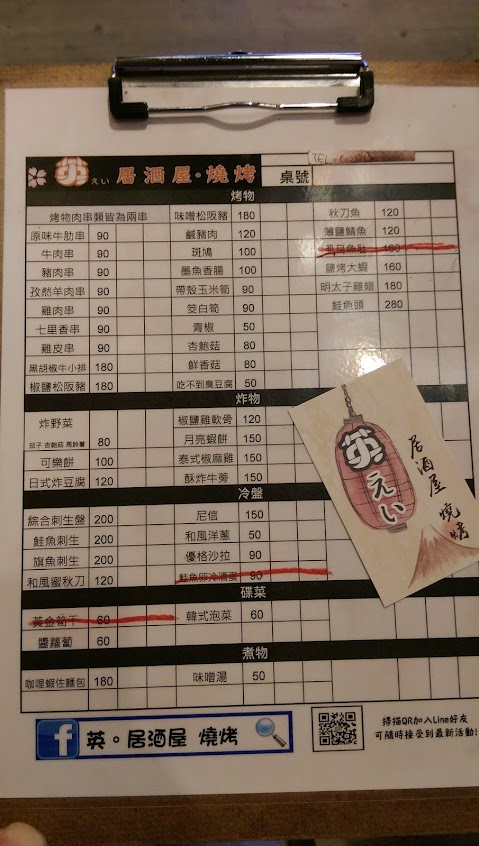 TEL
英 えい 居酒屋·燒烤 桌號
烤物
烤物肉串類皆為兩串 味噌松阪豬 180 秋刀魚 120
原味牛肋串 90 鹹豬肉 120 薄鹽鯖魚 120
牛肉串 90 斑鳩 100 虱目魚肚 160
豬肉串 90 墨魚香腸 100 鹽烤大蝦 160
孜然羊肉串 90 帶殼玉米筍 90 明太子雞翅 180
雞肉串 90 筊白筍 90 鮭魚頭 280
七里香串 90 青椒 50
雞皮串 90 杏鮑菇 80
黑胡椒牛小排 180 鮮香菇 80
椒鹽松阪豬 180 吃不到臭豆腐 50
炸物
炸野菜 椒鹽雞軟骨 120
茄子 杏鮑菇 馬鈴薯 80 月亮蝦餅 150
可樂餅 100 泰式椒麻雞 150
日式炸豆腐 120 酥炸牛蒡 150
冷盤
綜合刺生盤 200 尼信 150
鮭魚刺生 200 和風洋蔥 50
旗魚刺生 200 優格沙拉 90
和風蜜秋刀 120 鮭魚卵冷酒蛋 90
碟菜
黃金筍干 60 韓式泡菜 60
醬蘿蔔 60
煮物
咖哩蝦佐麵包 180 味噌湯 50
英
えい
居酒屋 燒烤
f 英。居酒屋 燒烤
掃描QR加入Line好友
可隨時接受到最新活動!